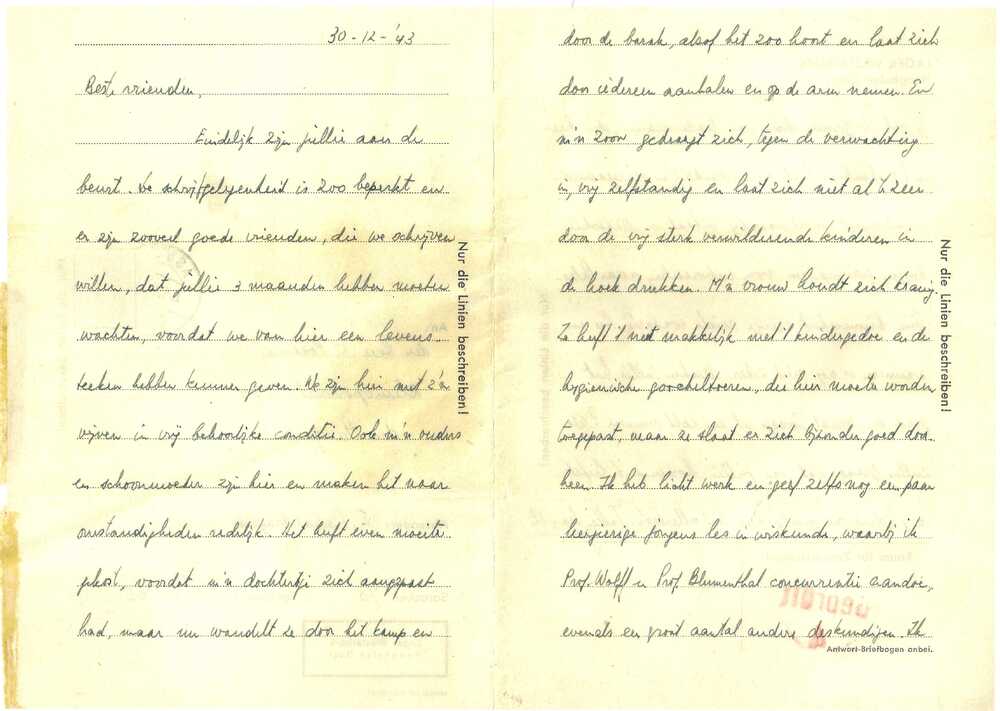 30-12-'43
Beste vrienden,
Eindelijk zijn jullie aan de
beurt. De schrijfgelegenheid is zoo beperkt en
er zijn zooveel goede vrienden, die we schrijven
willen, dat jullie 3 maanden hebben moeten
wachten, voordat we van hier een levens-
teeken hebben kunnen geven. We zijn hier met z'n
vijven in vrij behoorlijke conditie. Ook m'n ouders
en schoonmoeder zijn hier en maken het naar
omstandigheden redelijk. Het heeft even moeite
gekost, voordat m'n dochtertje zich aangepast
had, maar nu wandelt ze door het kamp en
Nur die Linien beschreiben!
door de barak, alsof het zoo hoort en laat zich
door iedereen aanhalen en op de arm nemen. En
m'n zoon gedraagt zich, tegen de verwachting
in, vrij zelfstandig en laat zich niet al te zeer
door de vrij sterk verwilderende kinderen in
de hoek drukken. M'n vrouw houdt zich kranig.
Ze heeft 't niet makkelijk met 't kindergedoe en de
hygienische goocheltoeren, die hier moeten worden
toegepast, maar ze slaat er zich bijzonder goed door-
heen. Ik heb licht werk en geef zelfs nog een paar
leergierige jongens les in wiskunde, waarbij ik
Prof. Wolff en Prof. Blumenthal concurrentie aandoe,
evenals een groot aantal andere deskundigen. Ik
Nur die Linien beschreiben!
Antwort-Briefbogen anbei.